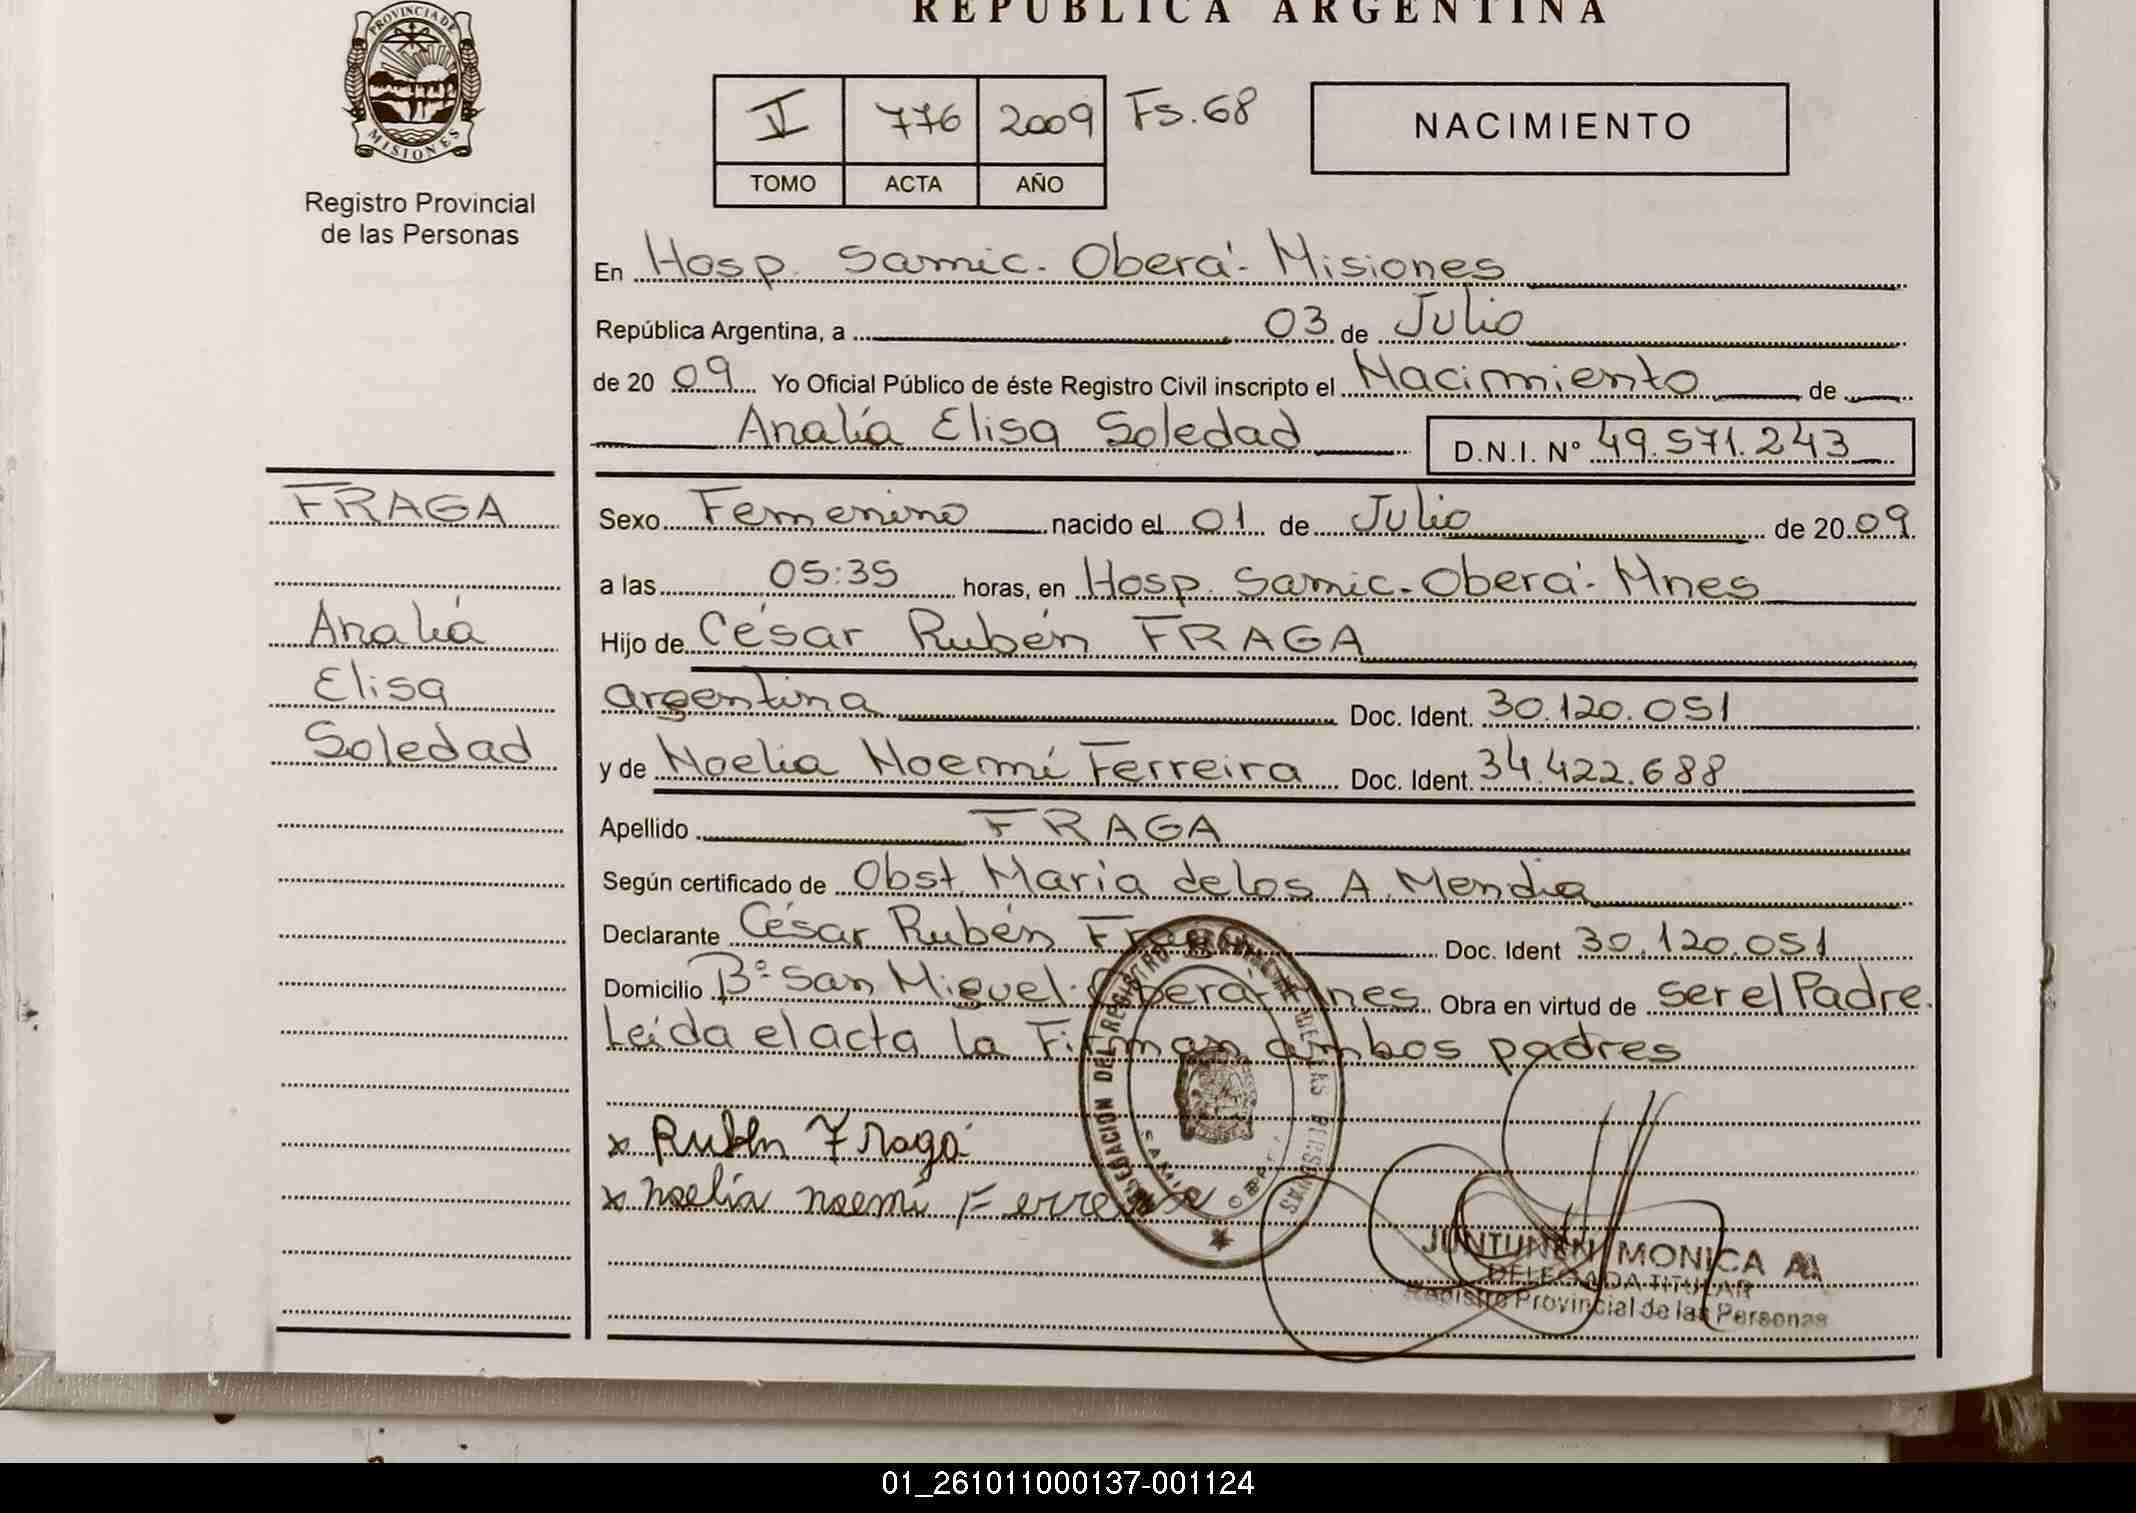 REPÚBLICA ARGENTINA
PROVINCIA DE
MISIONES
Registro Provincial
de las Personas
V 776 2009 Fs. 68
TOMO ACTA AÑO
NACIMIENTO
En Hosp. Samic. Oberá - Misiones
República Argentina, a 03 de Julio
de 2009 Yo Oficial Público de éste Registro Civil inscripto el Nacimiento de
Analía Elisa Soledad D.N.I. Nº 49.571.243
FRAGA
Analía
Elisa
Soledad
Sexo Femenino nacido el 01 de Julio de 2009
a las 05:35 horas, en Hosp. Samic - Oberá - Mnes
Hijo de César Rubén FRAGA
argentina Doc. Ident. 30.120.051
y de Noelia Noemí Ferreira Doc. Ident. 34.422.688
Apellido FRAGA
Según certificado de Obst. Maria de los A. Mendia
Declarante César Rubén Fraga Doc. Ident 30.120.051
Domicilio Bº San Miguel - Oberá - Mnes. Obra en virtud de ser el Padre.
Leída el acta la Firman ambos padres
x Rubén Fraga
x noelia noemí Ferreira
DELEGACIÓN DEL REGISTRO DE LAS PERSONAS
JUNTUNEN MONICA A.
DELEGADA TITULAR
Registro Provincial de las Personas
01_261011000137-001124